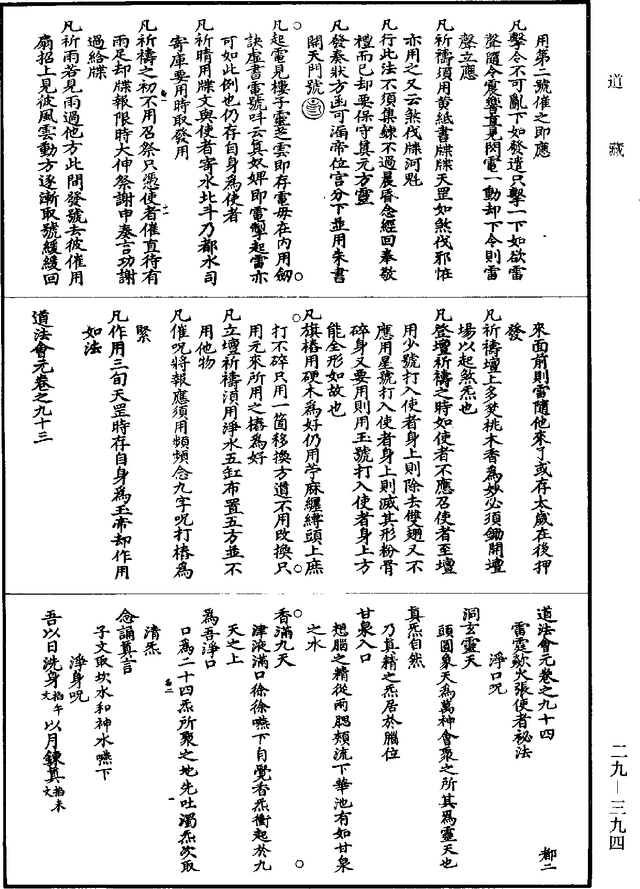 道藏
用第二號催之即應
凡擊令不可亂下如發遣只擊一下如欲雷
聲隨令震響直見閃電一動却下令則雷
聲立應
凡祈禱須用黃紙書牒牒天罡如煞伐邪怪
亦用之又云煞伐牒河魁
凡行此法不須集鍊不過晨昏念經回奉敬
禮而已却要保守真元方靈
凡發奏狀方函可漏帝位宮分下並用朱書
開天門號
凡起電見樓子雲芝雲即存電母在內用劒
訣虛書電號吽云真奴婢即電掣起雷亦
可如此例也仍存自身為使者
凡祈晴用牒文與使者寄水北斗乃都水司
寄庫要用時取發用
凡祈禱之初不用召祭只憑使者催直待有
雨足却牒報限時大伸祭謝申奏言功謝
過給牒
凡祈雨若見雨過他方此間發號去彼催用
扇招上見彼風雲動方逐漸取號緩緩回
來面前則雷隨他來了或存太歲在後押
發
凡祈禱壇上多焚桃木香為妙必須鋤開壇
場以起煞炁也
凡登壇祈禱之時如使者不應召使者至壇
用少號打入使者身上則除去雙翅又不
應用星號打入使者身上則滅其形粉骨
碎身又要用則用玉號打入使者身上方
能全形如故也
凡旗樁用硬木為好仍用苧麻纏縛頭上庶
打不碎只用一箇移換方道不用改換只
用元來所用之樁為好
凡立壇祈禱須用淨水五缸布置五方並不
用他物
凡催呪將報應須用頻頻念九字呪打樁為
緊
凡作用三旬天罡時存自身為玉帝却作用
如法
道法會元卷之九十三
道法會元卷之九十四 都二
雷霆欻火張使者祕法
淨口呪
洞玄靈天
頭圓象天為萬神會聚之所其為靈天也
真炁自然
乃真精之炁居於腦位
甘泉入口
想腦之精從兩腮頰流下華池有如甘泉
之水
香滿九天
津液滿口徐徐嚥下自覺香炁衝起於九
天之上
為吾淨口
口為二十四炁所聚之地先吐濁炁次取
清炁
念誦真言
子文取坎水和神水嚥下
淨身呪
吾以日洗身掐午文以月鍊真掐未文
二九—三九四